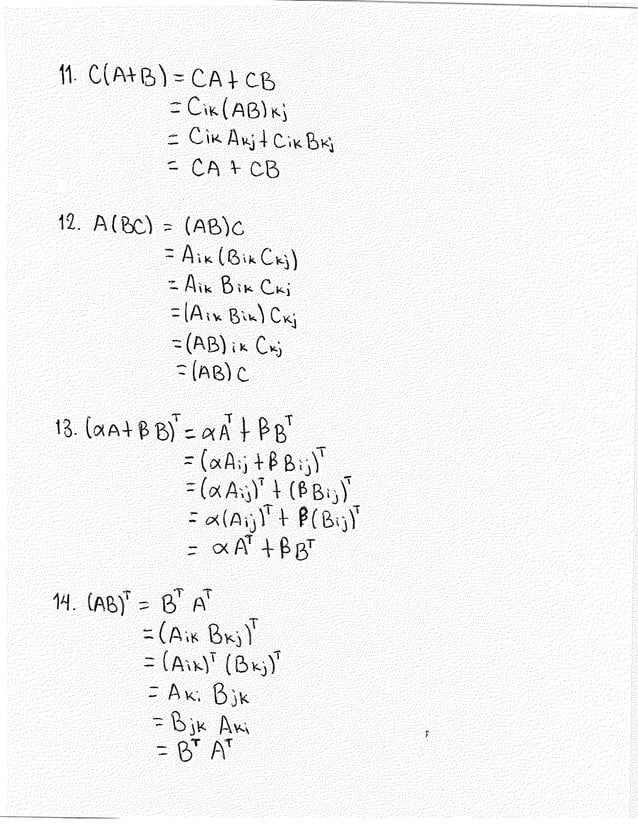 11. C(A+B) = CA + CB
= Cik(AB)kj
= Cik Akj + Cik Bkj
= CA + CB
12. A(BC) = (AB)C
= Aik (Bik Ckj)
= Aik Bik Ckj
= (Aik Bik) Ckj
= (AB)ik Ckj
= (AB)C
13. (αA + βB)ᵀ = αAᵀ + βBᵀ
= (αAij + βBij)ᵀ
= (αAij)ᵀ + (βBij)ᵀ
= α(Aij)ᵀ + β(Bij)ᵀ
= αAᵀ + βBᵀ
14. (AB)ᵀ = Bᵀ Aᵀ
= (Aik Bkj)ᵀ
= (Aik)ᵀ (Bkj)ᵀ
= Aki Bjk
= Bjk Aki
= Bᵀ Aᵀ